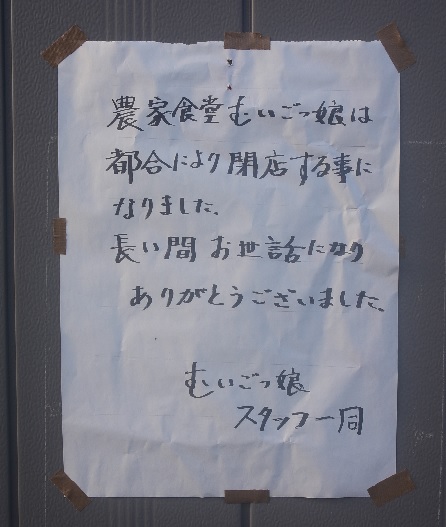 農家食堂むいごっ娘は
都合により閉店する事に
なりました。
長い間 お世話になり
ありがとうございました。
むいごっ娘
スタッフ一同